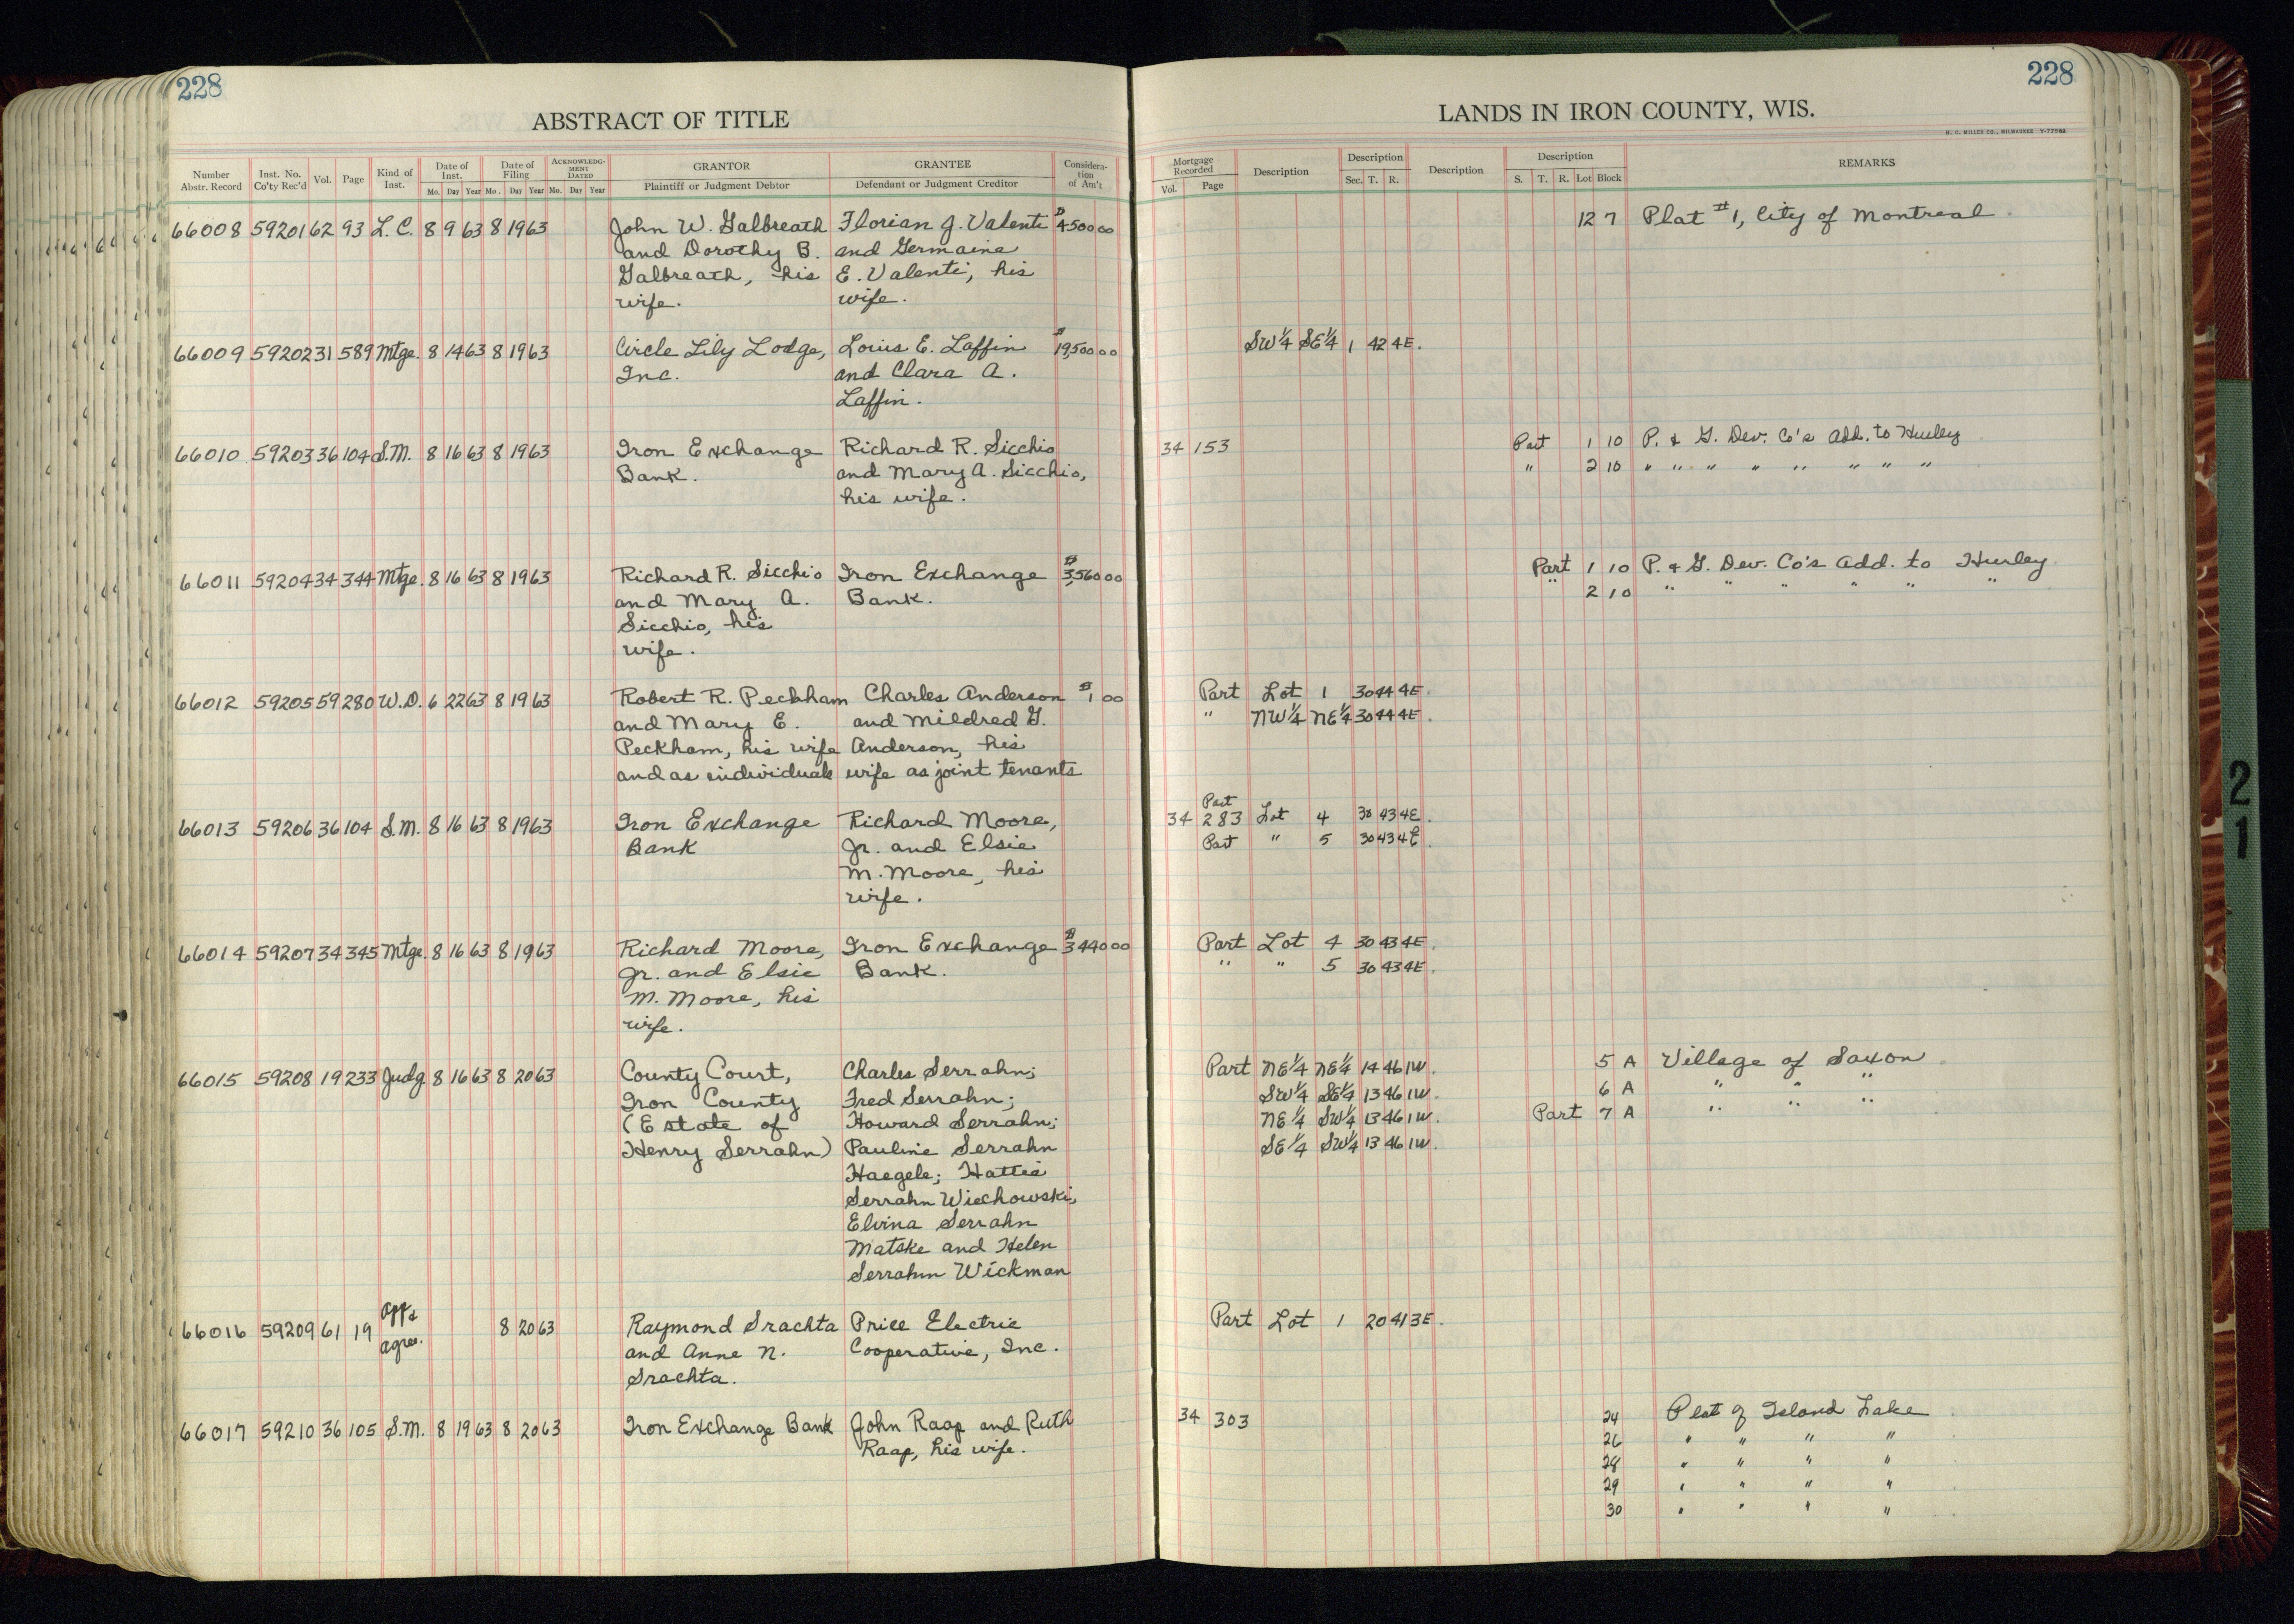 228
ABSTRACT OF TITLE
Number Abstr. Record Inst. No. Co'ty Rec'd Vol. Page Kind of Inst. Date of Inst. Mo. Day Year Date of Filing Mo. Day Year ACKNOWLEDGMENT DATED Mo. Day Year GRANTOR Plaintiff or Judgment Debtor GRANTEE Defendant or Judgment Creditor Consideration of Am't
66008 59201 62 93 L.C. 8 9 63 8 19 63 John W. Galbreath Florian J. Valenti $4500 00
and Dorothy B. and Germaine
Galbreath, his E. Valenti, his
wife. wife.
66009 59202 31 589 Mtge. 8 14 63 8 19 63 Circle Lily Lodge, Louis E. Laffin $19,500 00
Inc. and Clara A.
Laffin.
66010 59203 36 104 S.M. 8 16 63 8 19 63 Iron Exchange Richard R. Sicchio
Bank. and Mary A. Sicchio,
his wife.
66011 59204 34 344 Mtge. 8 16 63 8 19 63 Richard R. Sicchio Iron Exchange $3,560 00
and Mary A. Bank.
Sicchio, his
wife.
66012 59205 59 280 W.D. 6 22 63 8 19 63 Robert R. Peckham Charles Anderson $1 00
and Mary E. and Mildred G.
Peckham, his wife Anderson, his
and as individuals wife as joint tenants
66013 59206 36 104 S.M. 8 16 63 8 19 63 Iron Exchange Richard Moore,
Bank Jr. and Elsie
M. Moore, his
wife.
66014 59207 34 345 Mtge. 8 16 63 8 19 63 Richard Moore, Iron Exchange $3440 00
Jr. and Elsie Bank.
M. Moore, his
wife.
66015 59208 19 233 Judg 8 16 63 8 20 63 County Court, Charles Serrahn;
Iron County Fred Serrahn;
(Estate of Howard Serrahn;
Henry Serrahn) Pauline Serrahn
Haegele; Hattie
Serrahn Wiechowski,
Elvina Serrahn
Matske and Helen
Serrahn Wickman
66016 59209 61 19 App & agree. 8 20 63 Raymond Srachta Price Electric
and Anne N. Cooperative, Inc.
Srachta.
66017 59210 36 105 S.M. 8 19 63 8 20 63 Iron Exchange Bank John Raap and Ruth
Raap, his wife.
228
LANDS IN IRON COUNTY, WIS.
H. C. MILLER CO., MILWAUKEE
Mortgage Recorded Vol. Page Description Description Sec. T. R. Description Description S. T. R. Lot Block REMARKS
12 7 Plat #1, City of Montreal
SW¼ SE¼ 1 42 4E.
34 153 Part 1 10 P. & G. Dev. Co's Add. to Hurley
" 2 10 " " " " " " " "
Part 1 10 P. & G. Dev. Co's Add. to Hurley
" 2 10 " " " " " "
Part Lot 1 30 44 4E.
" NW¼ NE¼ 30 44 4E.
Part
34 283 Lot 4 30 43 4E.
Part " 5 30 43 4E.
Part Lot 4 30 43 4E.
" " 5 30 43 4E.
Part NE¼ NE¼ 14 46 1W. 5 A Village of Saxon
SW¼ SE¼ 13 46 1W. 6 A " " "
NE¼ SW¼ 13 46 1W. Part 7 A " " "
SE¼ SW¼ 13 46 1W.
Part Lot 1 20 41 3E.
34 303 24 Plat of Island Lake
26 " " " "
28 " " " "
29 " " " "
30 " " " "
21